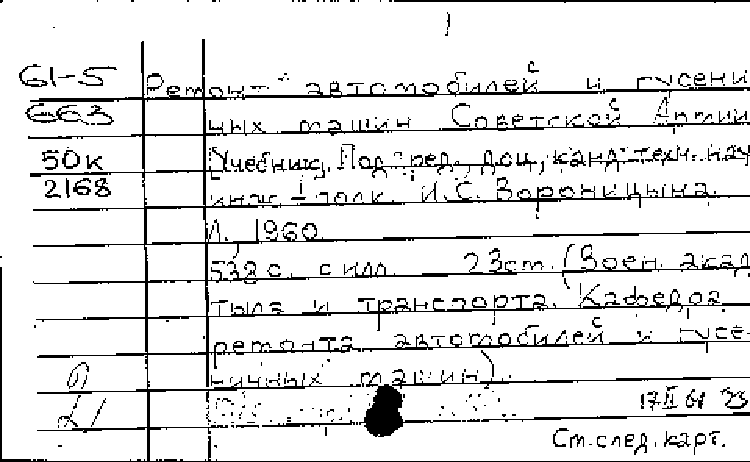 61-5 Ремонт автомобилей и гусени
663 чных машин Советской Армии
50к Учебник. Под ред. доц, канд. техн. нау
2168 инж.-полк. И.С. Вороницына.
Л. 1960
538 с. с илл. 23 см. (Воен. акад
тыла и транспорта. Кафедра
ремонта автомобилей и гусе-
ничных машин).
17 II 61
См. след. карт.